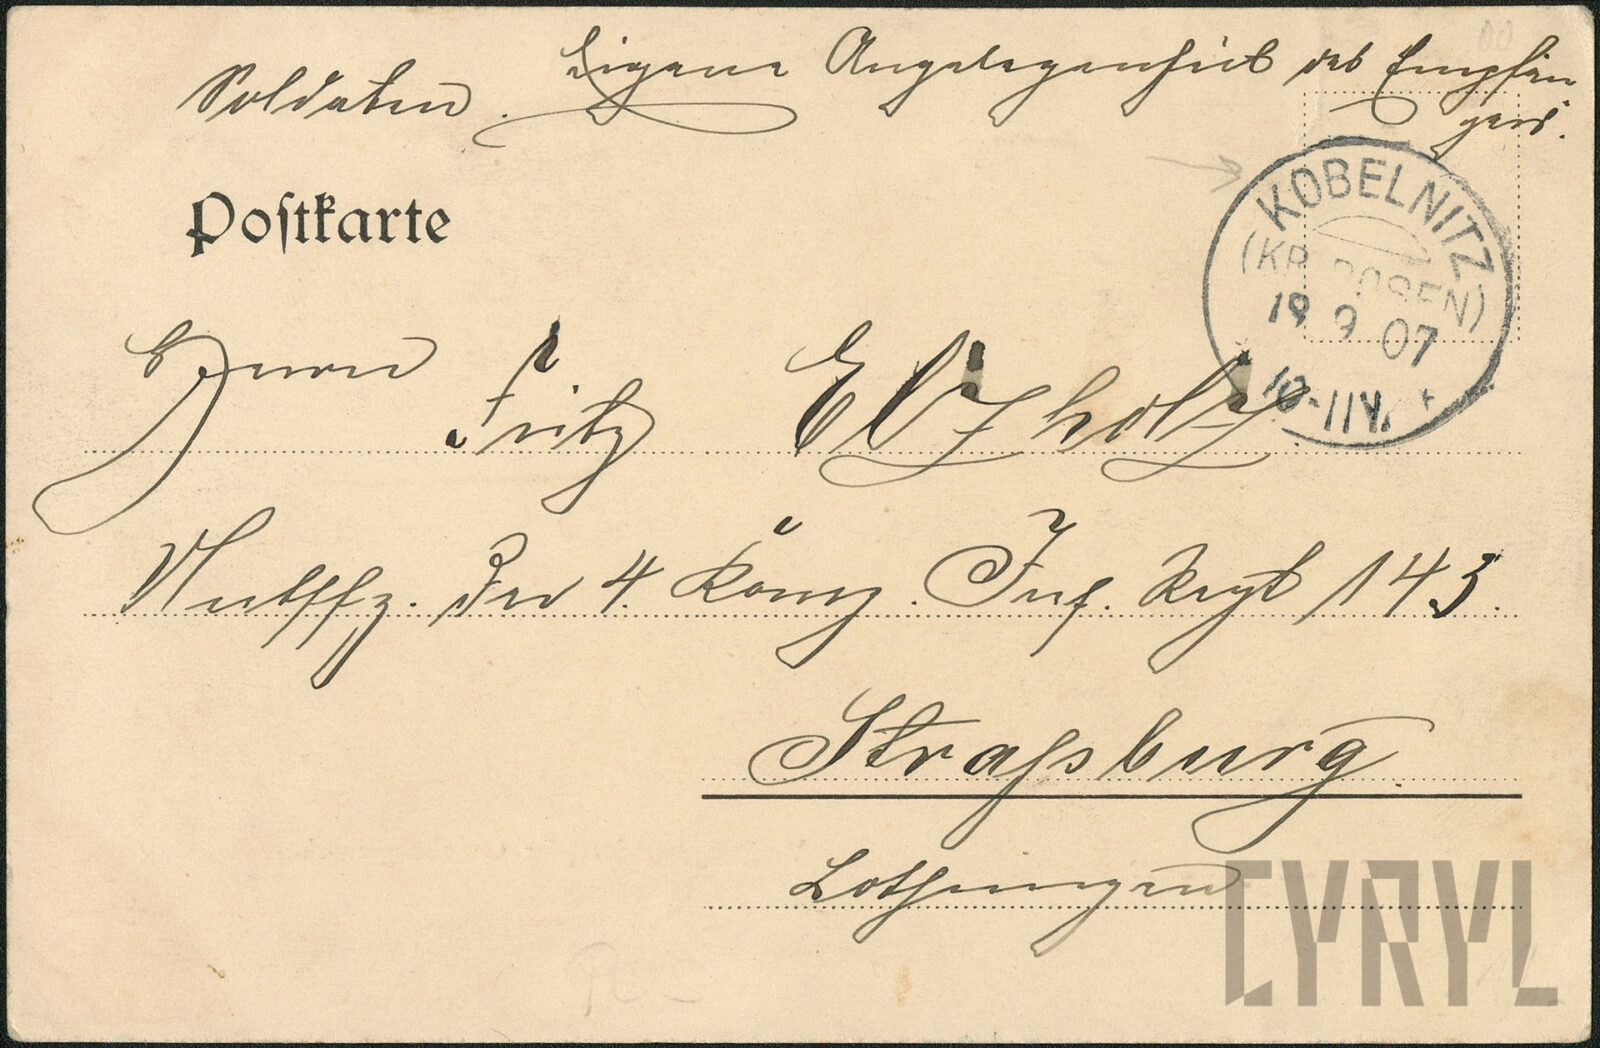 Soldaten. Eigene Angelegenheit des Empfän
gers.
Postkarte
KOBELNITZ
(KR. POSEN)
19 9 07
10-11V.
Herrn Fritz Elzholz
der 4. König. Inf. Regt 143.
Strassburg.
Lothringen
CYRYL